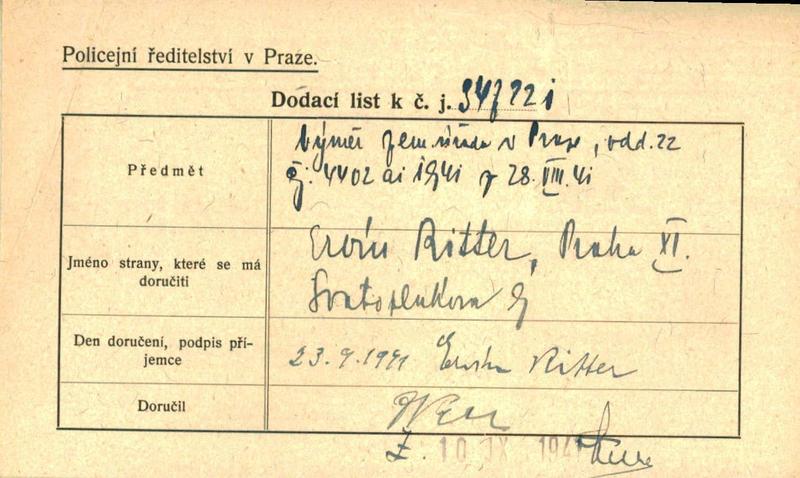 Policejní ředitelství v Praze.
Dodací list k č. j.
Předmět
Výměr zem. úřadu v Praze, odd. 22
čj. 4402 ai 1941 z 28. VIII. 41
Jméno strany, které se má doručiti
Ervín Ritter, Praha XI.
Svatoplukova
Den doručení, podpis příjemce
23. 9. 1941 Ervín Ritter
Doručil
10 IX 194